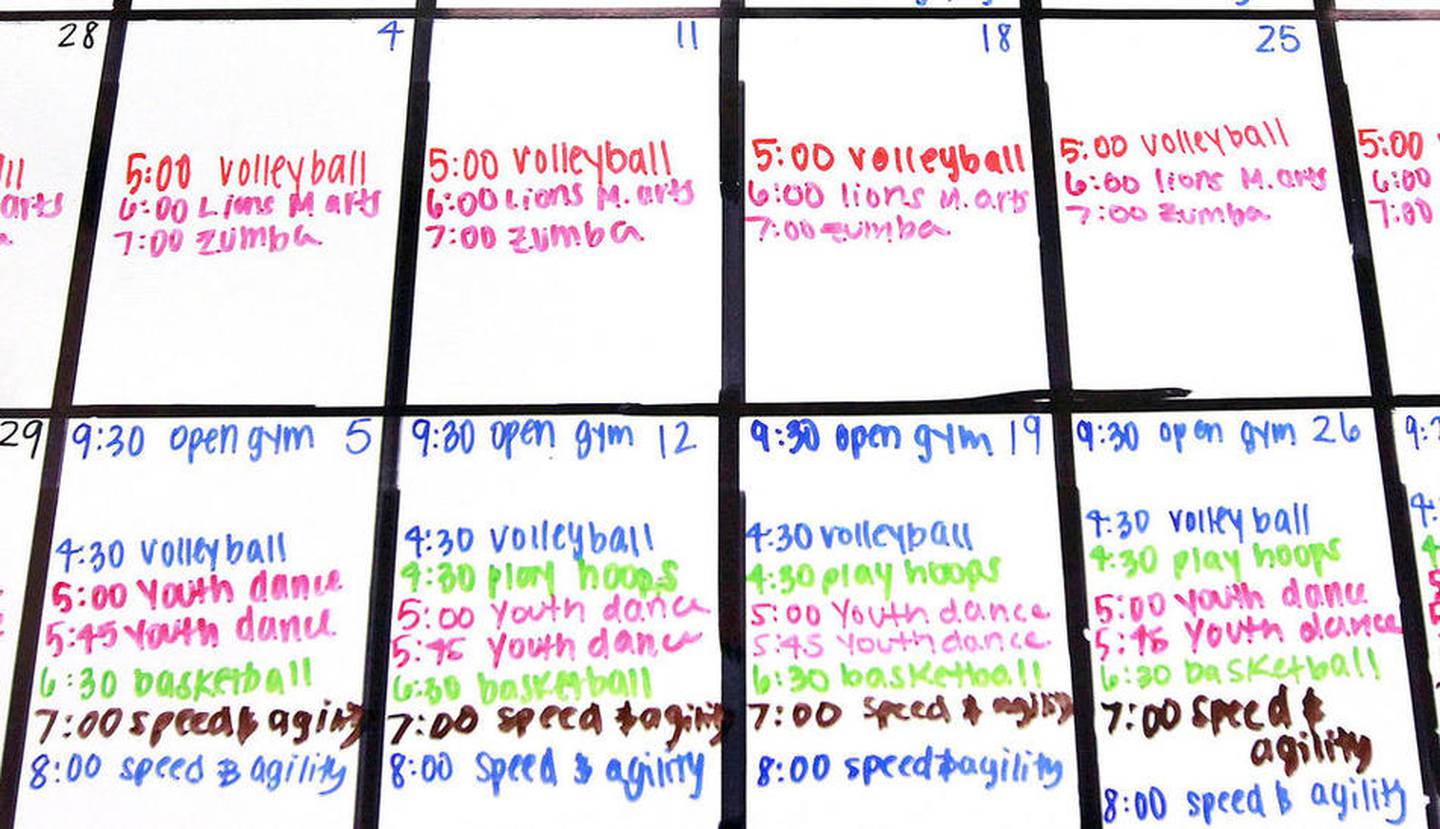 28
ll
arts
a
4
5:00 volleyball
6:00 Lions M arts
7:00 zumba
11
5:00 volleyball
6:00 Lions M. arts
7:00 zumba
18
5:00 volleyball
6:00 lions M. arts
7:00 zumba
25
5:00 volleyball
6:00 lions M. arts
7:00 zumba
5:00
6:00
7:00
29
9:30 open gym 5
4:30 volleyball
5:00 Youth dance
5:45 Youth dance
6:30 basketball
7:00 speed & agility
8:00 speed & agility
9:30 open gym 12
4:30 volleyball
4:30 play hoops
5:00 Youth dance
5:45 Youth dance
6:30 basketball
7:00 speed & agility
8:00 speed & agility
9:30 open gym 19
4:30 volleyball
4:30 play hoops
5:00 Youth dance
5:45 Youth dance
6:30 basketball
7:00 speed & agility
8:00 speed & agility
9:30 open gym 26
4:30 volleyball
4:30 play hoops
5:00 Youth dance
5:45 Youth dance
6:30 basketball
7:00 speed &
agility
8:00 speed & agility